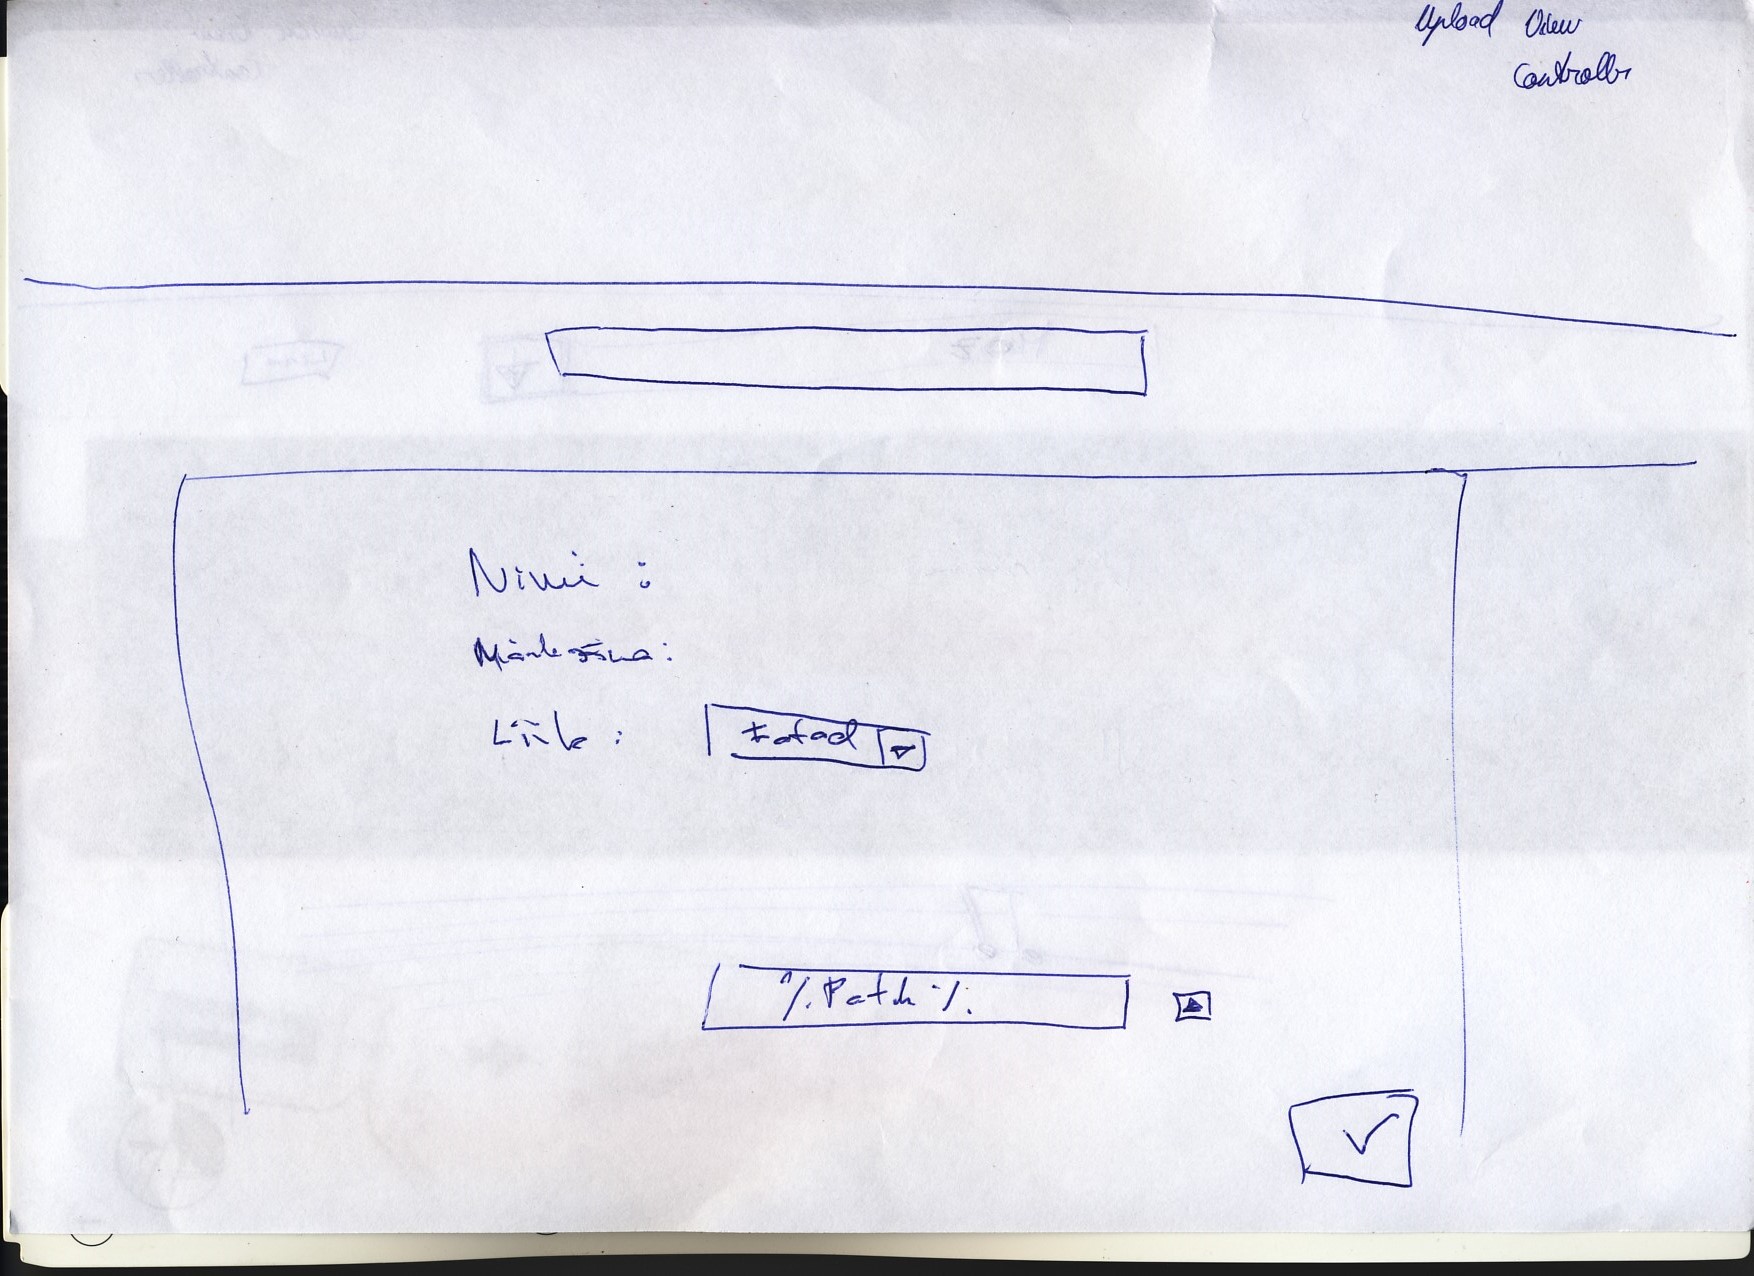 Upload View
Controller
Nimi :
Märksõna:
Liik :
%Path%